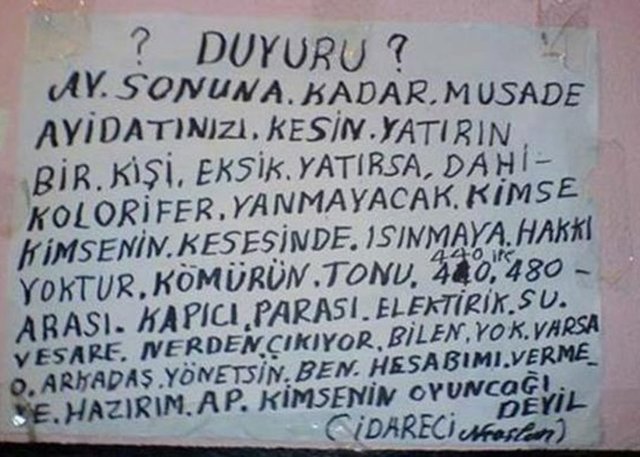 ? DUYURU ?
AY. SONUNA. KADAR. MUSADE
AYİDATINIZI. KESİN. YATIRIN
BİR. KİŞİ. EKSİK. YATIRSA, DAHİ-
KOLORİFER. YANMAYACAK. KİMSE
KİMSENİN. KESESİNDE. ISINMAYA. HAKKI
YOKTUR. KÖMÜRÜN. TONU. 440 ile 480 -
ARASI. KAPICI, PARASI. ELEKTİRİK. SU.
VESARE. NERDEN. ÇIKIYOR. BİLEN. YOK. VARSA
O. ARKADAŞ. YÖNETSİN. BEN. HESABIMI. VERME_
YE. HAZIRIM. AP. KİMSENİN OYUNCAĞI
DEYİL
(İDARECİ